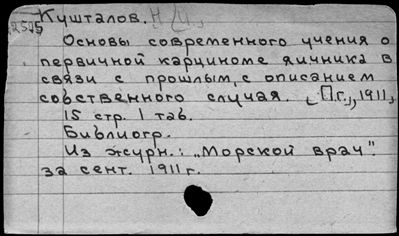 Кушталов. Н. И.,
2505
Основы современного учения о
первичной карциноме яичника в
связи с прошлым, с описанием
собственного случая. [П.г.], 1911,
15 стр. 1 таб.
Библиогр.
Из журн.: „Морской врач".
за сент. 1911 г.